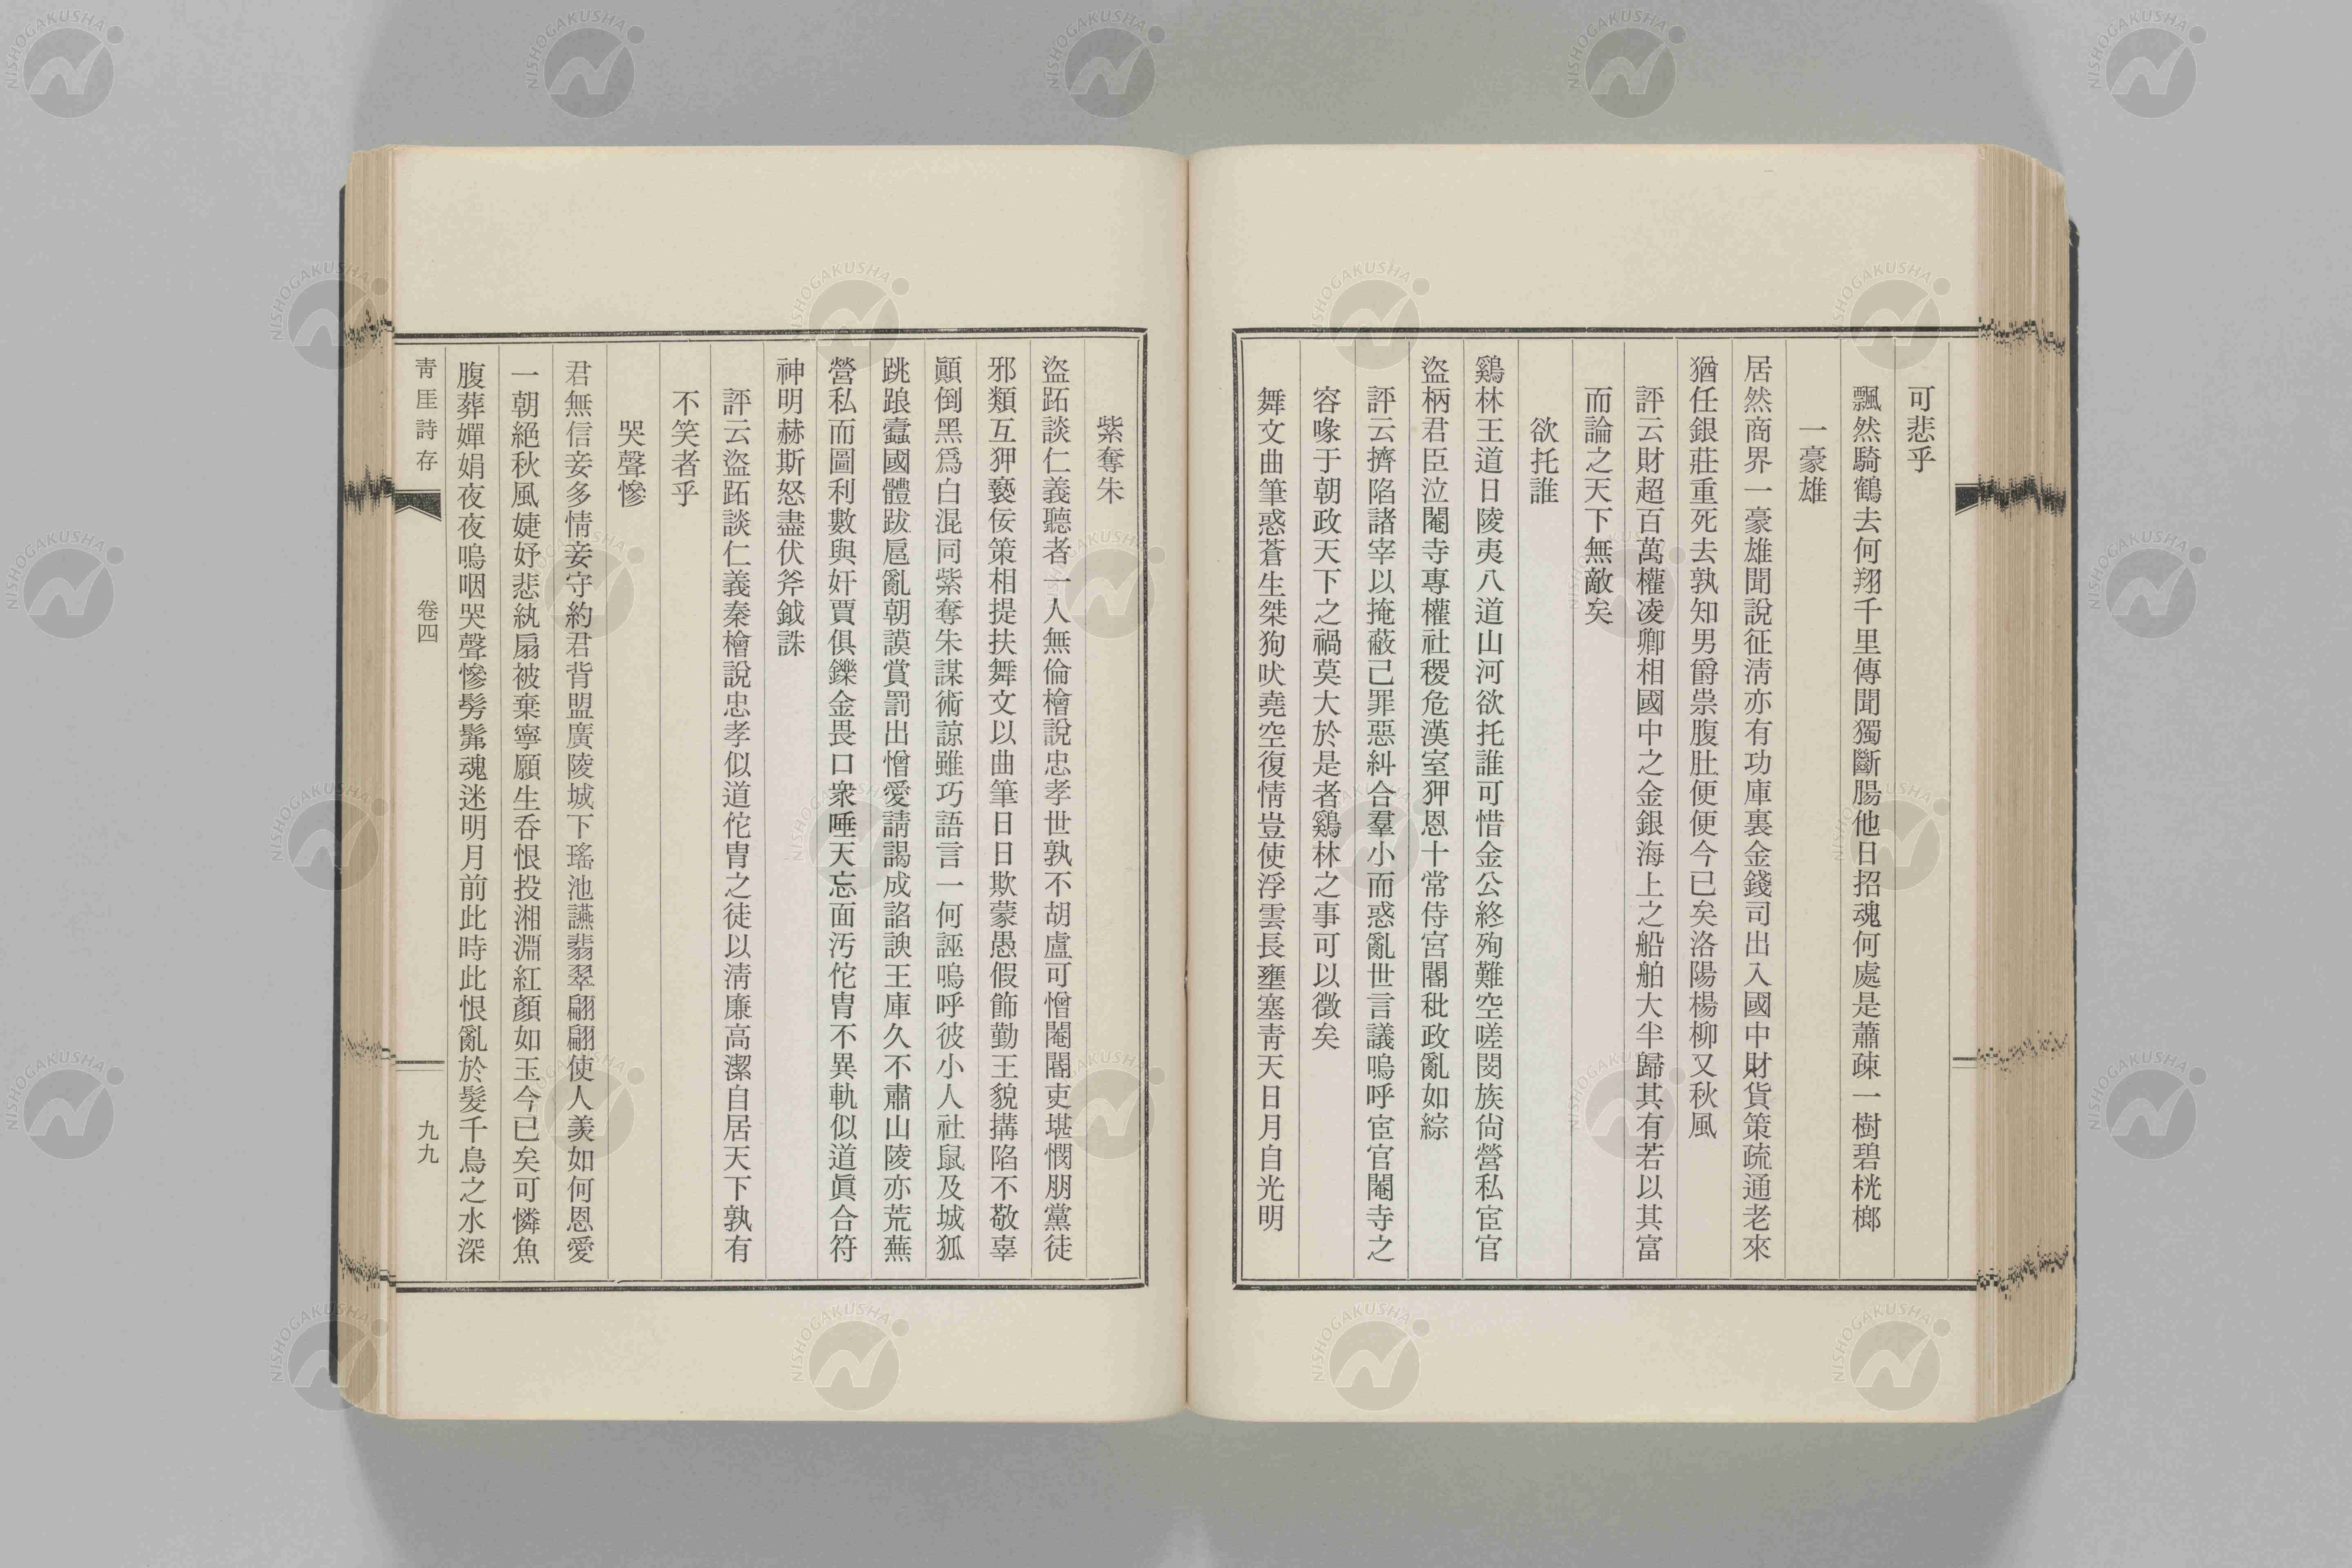 可悲乎
飄然騎鶴去何翔千里傳聞獨斷腸他日招魂何處是蕭疎一樹碧桄榔
一豪雄
居然商界一豪雄聞說征淸亦有功庫裏金錢司出入國中財貨策疏通老來
猶任銀莊重死去孰知男爵祟腹肚便便今已矣洛陽楊柳又秋風
評云財超百萬權凌卿相國中之金銀海上之船舶大半歸其有若以其富
而論之天下無敵矣
欲托誰
鷄林王道日陵夷八道山河欲托誰可惜金公終殉難空嗟閔族尙營私宦官
盜柄君臣泣閹寺專權社稷危漢室狎恩十常侍宮闇秕政亂如綜
評云擠陷諸宰以掩蔽己罪惡糾合羣小而惑亂世言議嗚呼宦官閹寺之
容喙于朝政天下之禍莫大於是者鷄林之事可以徵矣
舞文曲筆惑蒼生桀狗吠堯空復情豈使浮雲長壅塞靑天日月自光明
紫奪朱
盜跖談仁義聽者一人無倫檜說忠孝世孰不胡盧可憎閹闇吏堪憫朋黨徒
邪類互狎褻佞策相提扶舞文以曲筆日日欺蒙愚假飾勤王貌搆陷不敬辜
顚倒黑爲白混同紫奪朱謀術諒雖巧語言一何誣嗚呼彼小人社鼠及城狐
跳踉蠹國體跋扈亂朝謨賞罰出憎愛請謁成諂諛王庫久不肅山陵亦荒蕪
營私而圖利數與奸賈俱鑠金畏口衆唾天忘面汚佗冑不異軌似道眞合符
神明赫斯怒盡伏斧鉞誅
評云盜跖談仁義秦檜說忠孝似道佗冑之徒以淸廉高潔自居天下孰有
不笑者乎
哭聲慘
君無信妾多情妾守約君背盟廣陵城下瑤池讌翡翠翩翩使人羨如何恩愛
一朝絕秋風婕妤悲紈扇被棄寧願生呑恨投湘淵紅顏如玉今已矣可憐魚
腹葬嬋娟夜夜嗚咽哭聲慘髣髴魂迷明月前此時此恨亂於髮千鳥之水深
靑厓詩存
卷四
九九